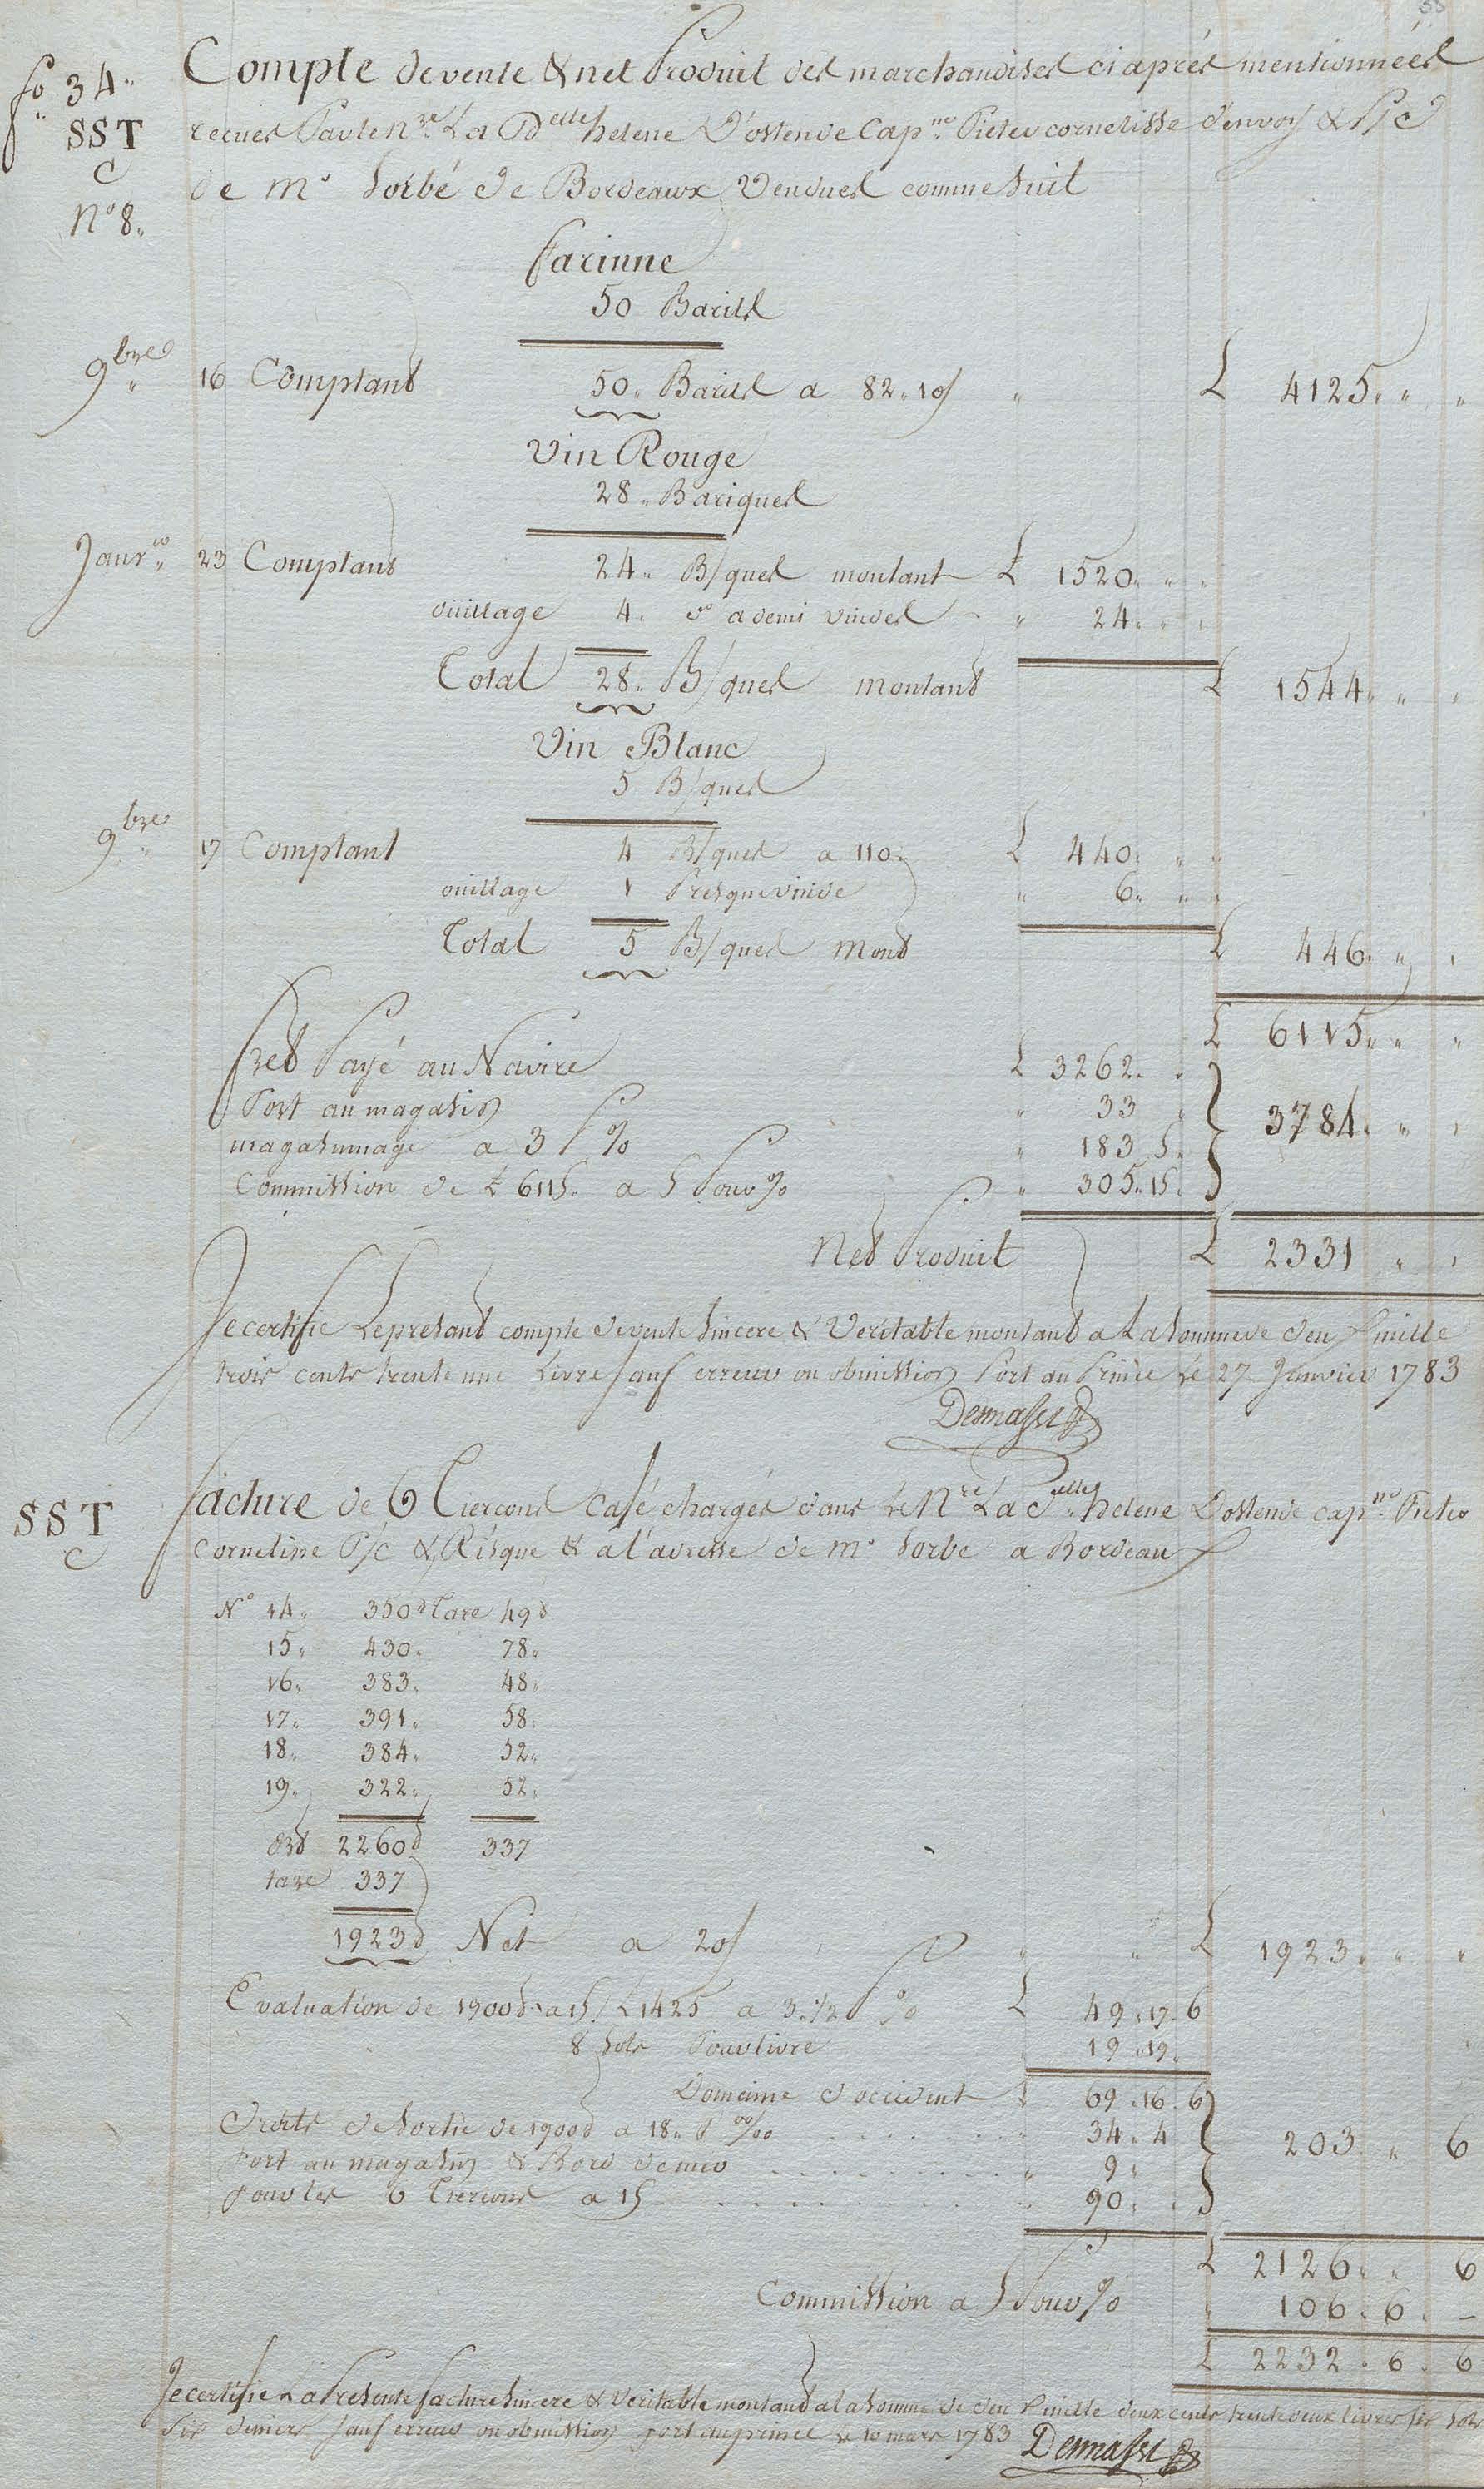 55
fo 34.. Compte de vente & net Produit des marchandises ci aprés mentionnées
SST recues Par le nre. La Delle helene D'ostende Capne. Pieter cornelisse d'envoy & P/c
C
de mr. Sorbé de Bordeaux Vendues comme Suit
No 8.
farinne
50 Barils
9bre 16 Comptant 50. Barils a 82..10/ " £ 4125. " "
Vin Rouge
28. Bariques
Janvr. 23 Comptant 24. B/ques montant £ 1520. " "
ouillage 4. do a demi vuides " 24. " "
Total 28. B/ques montant £ 1544. " "
Vin Blanc
5 B/ques
9bre 17 Comptant 4 B/ques a 110. £ 440. " "
ouillage 1 Presque vuide " 6. " "
Total 5 B/ques mont £ 446. " "
£ 6115. " "
fret Payé au Navire £ 3262. "
Port au magasin " 33 " 3784. " "
magasinnage a 3 P % " 183 5.
Commission de £ 6115. a 5 Pour % " 305..15.
Net Produit £ 2331 " "
Je certifie Le presant compte de vente Sincere & Veritable montant a La Somme de deux mille
trois cents trente une Livre Sauf erreur ou obmission Port au Prince Le 27 Janvier 1783
Desmasset
SST facture de 6 Tiercons Café chargés dans Le Nre La Delle. helene D'ostende capne. Pieter
C Cornelisse P/c & Risque & a l'adresse de mr. Sorbe a Bordeaux
No 14. 350d Tare 49d
15. 430. 78.
16. 383. 48.
17. 391. 58.
18. 384. 52.
19. 322. 52.
Brt 2260d 337
tare 337
1923d Net a 20/ " " £ 1923. " "
Evaluation de 1900d a 15/ £ 1425 a 3.1/2 P % £ 49.17.6
8 Sols Pour livre 19.19.
Domaine d'occident £ 69.16.6
Droits de Sortie de 1900d a 18.. P 00/00 " 34.4 203 " 6
Port au magasin & Bord de mer " 9 "
pour les 6 Tiercons a 15 " 90. "
£ 2126. " 6
Commission a 5 Pour % " 106.6. -
£ 2232.6.6
Je certifie La Presente facture Sincere & Veritable montant a la Somme de deux mille deux cents trente deux livres Six Sols
Six deniers Sauf erreur ou obmission port au prince le 10 mars 1783 Desmasset